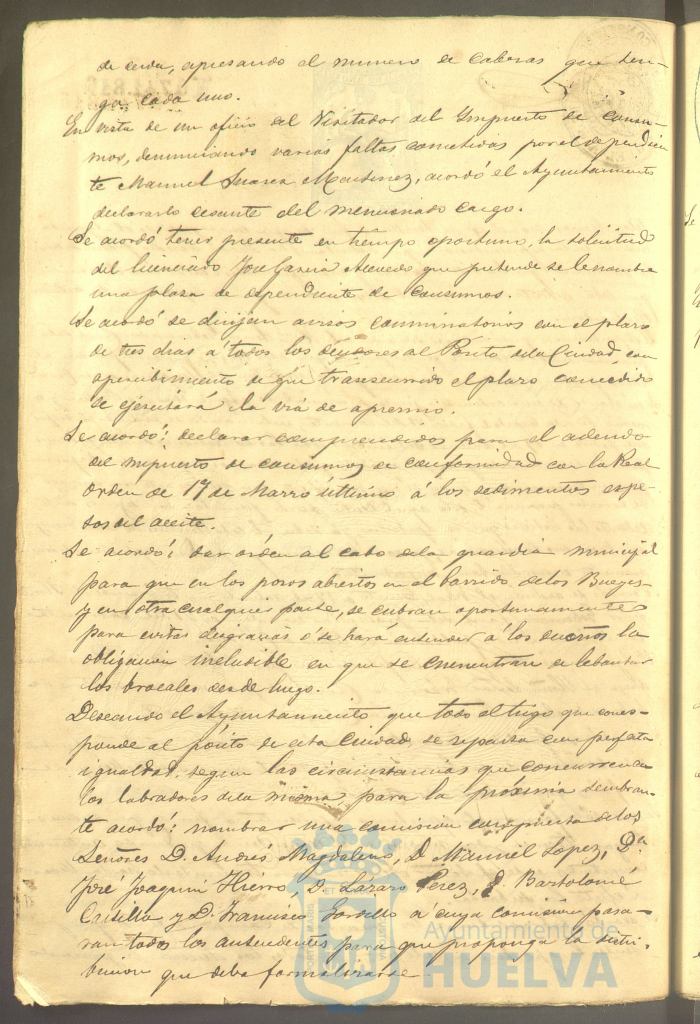 de cerda, apresando el numero de cabezas que ten-
ga cada uno.
En vista de un oficio del Visitador del Impuesto de Consu-
mos, denunciando varias faltas cometidas por el dependien
te Manuel Suarez Martinez, acordó el Ayuntamiento
declararlo cesante del mencionado cargo.
Se acordó tener presente en tiempo oportuno, la solicitud
del licenciado José Garcia Acevedo que pretende se le nombre
una plaza de dependiente de Consumos.
Se acordó se dirijan avisos conminatorios con el plazo
de tres dias á todos los deudores al Pósito de la Ciudad con
apercibimiento de que transcurrido el plazo concedido
se ejercitará la via de apremio.
Se acordó: declarar comprendidos para el adeudo
del impuesto de consumos de conformidad con la Real
orden de 17 de Marzo último á los sedimentos espe-
sos del aceite.
Se acordó: dar orden al cabo de la guardia municipal
para que en los pozos abiertos en el barrido de los Bueyes
y en otra cualquier parte, se cubran oportunamente
para evitar desgracias ó se hará entender á los dueños la
obligacion ineludible en que se encuentran de lebantar
los brocales desde luego.
Deseando el Ayuntamiento que todo el trigo que corres-
ponde al pósito de esta Ciudad se reparta con perfecta
igualdad, segun las circunstancias que concurren en
los labradores de la misma para la próxima sembran-
te acordó: nombrar una comision compuesta de los
Señores D. Andrés Magdaleno, D. Manuel Lopez, Dn
José Joaquin Hierro, D. Lázaro Perez, D. Bartolomé
Casilla y D. Francisco Gordillo á cuya comision pasa-
ran todos los antecedentes para que proponga la distri-
bucion que deba formalizarse.
Ayuntamiento de
HUELVA